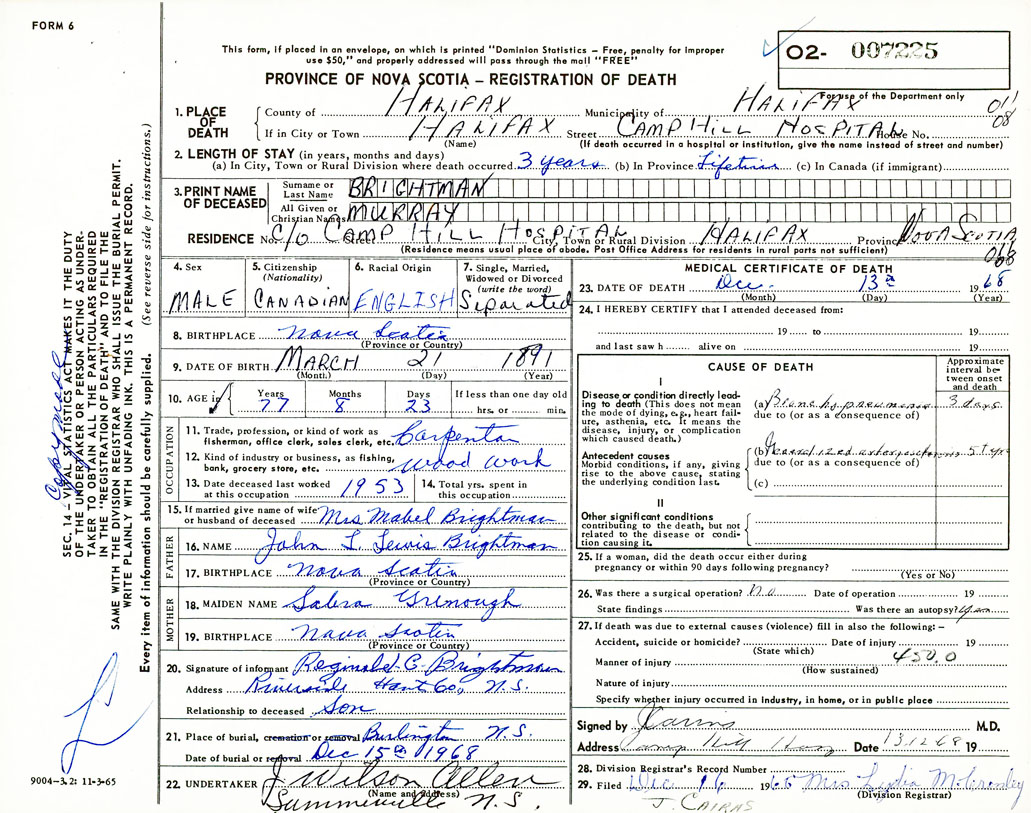 FORM 6
This form, if placed in an envelope, on which is printed "Dominion Statistics – Free, penalty for improper
use $50," and properly addressed will pass through the mail "FREE"
O2- 007225
PROVINCE OF NOVA SCOTIA – REGISTRATION OF DEATH
For use of the Department only
011
08
1. PLACE OF DEATH
County of HALIFAX Municipality of HALIFAX
If in City or Town HALIFAX Street CAMP HILL HOSPITAL House No.
(Name) (If death occurred in a hospital or institution, give the name instead of street and number)
2. LENGTH OF STAY (in years, months and days)
(a) In City, Town or Rural Division where death occurred 3 years (b) In Province Lifetime (c) In Canada (if immigrant)
3. PRINT NAME OF DECEASED
Surname or Last Name BRIGHTMAN
All Given or Christian Names MURRAY
RESIDENCE No. C/O CAMP HILL HOSPITAL Street City, Town or Rural Division HALIFAX Province NOVA SCOTIA
(Residence means usual place of abode. Post Office Address for residents in rural parts not sufficient)
068
4. Sex
MALE
5. Citizenship
(Nationality)
CANADIAN
6. Racial Origin
ENGLISH
7. Single, Married,
Widowed or Divorced
(write the word)
Separated
8. BIRTHPLACE Nova Scotia
(Province or Country)
9. DATE OF BIRTH MARCH 21 1891
(Month) (Day) (Year)
10. AGE in Years Months Days If less than one day old
77 8 23 hrs. or min.
OCCUPATION
11. Trade, profession, or kind of work as
fisherman, office clerk, sales clerk, etc. Carpenter
12. Kind of industry or business, as fishing,
bank, grocery store, etc. wood work
13. Date deceased last worked
at this occupation 1953
14. Total yrs. spent in
this occupation
15. If married give name of wife
or husband of deceased Mrs Mabel Brightman
FATHER
16. NAME John L. Lewis Brightman
17. BIRTHPLACE Nova Scotia
(Province or Country)
MOTHER
18. MAIDEN NAME Grenough
19. BIRTHPLACE Nova Scotia
(Province or Country)
20. Signature of informant Reginald C. Brightman
Address Riverside Hants Co, N.S.
Relationship to deceased Son
21. Place of burial, cremation or removal Burlington N.S.
Date of burial or removal Dec 15th 1968
22. UNDERTAKER J. Wilson Allen
(Name and Address)
Summerville N.S.
MEDICAL CERTIFICATE OF DEATH
23. DATE OF DEATH Dec. 13th 1968
(Month) (Day) (Year)
24. I HEREBY CERTIFY that I attended deceased from:
19 to 19
and last saw h alive on 19
CAUSE OF DEATH
Approximate
interval be-
tween onset
and death
I
Disease or condition directly lead-
ing to death (This does not mean
the mode of dying, e.g., heart fail-
ure, asthenia, etc. It means the
disease, injury, or complication
which caused death.)
(a) Bronchopneumonia 3 days
due to (or as a consequence of)
Antecedent causes
Morbid conditions, if any, giving
rise to the above cause, stating
the underlying condition last.
(b) Generalized arteriosclerosis
due to (or as a consequence of)
(c)
II
Other significant conditions
contributing to the death, but not
related to the disease or condi-
tion causing it.
25. If a woman, did the death occur either during
pregnancy or within 90 days following pregnancy?
(Yes or No)
26. Was there a surgical operation? No Date of operation 19
State findings Was there an autopsy?
27. If death was due to external causes (violence) fill in also the following: –
Accident, suicide or homicide? Date of injury 19
(State which) 450.0
Manner of injury
(How sustained)
Nature of injury
Specify whether injury occurred in industry, in home, or in public place
Signed by Cairns M.D.
Address Camp Hill Hosp Date 13.12.68 19
28. Division Registrar's Record Number
29. Filed Dec 16 1968 Mrs Lydia
(Division Registrar)
J. CAIRNS
SEC. 14 – VITAL STATISTICS ACT MAKES IT THE DUTY
OF THE UNDERTAKER OR PERSON ACTING AS UNDER-
TAKER TO OBTAIN ALL THE PARTICULARS REQUIRED
IN THE "REGISTRATION OF DEATH" AND TO FILE THE
SAME WITH THE DIVISION REGISTRAR WHO SHALL ISSUE THE BURIAL PERMIT.
WRITE PLAINLY WITH UNFADING INK. THIS IS A PERMANENT RECORD.
Every item of information should be carefully supplied. (See reverse side for instructions.)
9004–3.2: 11-3-65